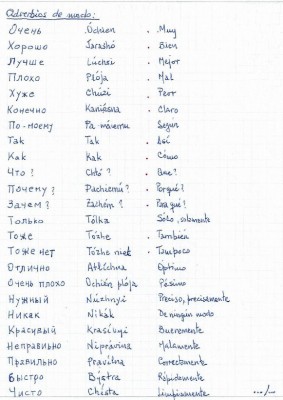 Adverbios de modo:
Очень Óchien . Muy
Хорошо Jarashó . Bien
Лучше Lúchei . Mejor
Плохо Plója . Mal
Хуже Chúzi . Peor
Конечно Kaniésna . Claro
По-моему Pa móemu . Segun
Так Tak . Así
Как Kak . Cómo
Что? Chtó? . Que?
Почему? Pachiemú? . Porqué?
Зачем? Zachém? . Para qué?
Только Tólka Sólo, solamente
Тоже Tózhe . También
Тоже нет Tózhe niet . Tampoco
Отлично Atlíchna Optimo
Очень плохо Ochién plója Pésimo
Нужный Núzhnyi Preciso, precisamente
Никак Nikák De ningún modo
Красивый Krasívyi Buenamente
Неправильно Niprávina Malamente
Правильно Pravílna Correctamente
Быстро Býstra Rápidamente
Чисто Chísta Limpiamente
.../...